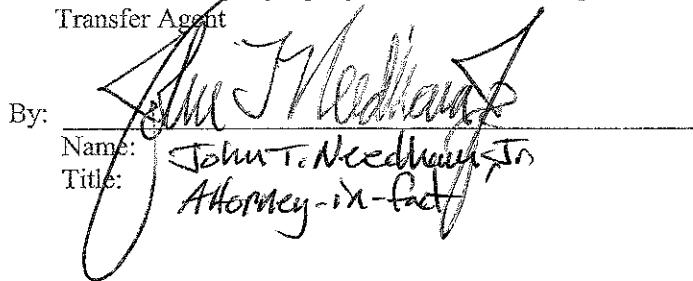 Transfer Agent
By: John T Needham Jr
Name: John T. Needham, Jr
Title: Attorney-in-fact